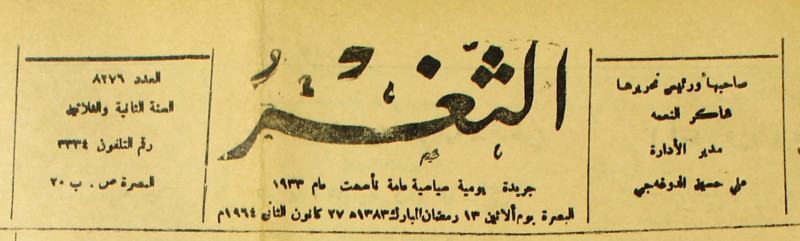 صاحبها ورئيس تحريرها
شاكر النعمه
مدير الأدارة
علي حسين الدوغه‌جي
الثغر
جريدة يومية سياسية عامة تأسست عام ١٩٣٣
البصرة يوم ألاثنين ١٣ رمضان المبارك ١٣٨٣ه ٢٧ كانون الثاني ١٩٦٤م
العدد ٨٢٧٦
السنة الثانية والثلاثين
رقم التلفون ٣٣٣٤
البصرة ص . ب ٢٠